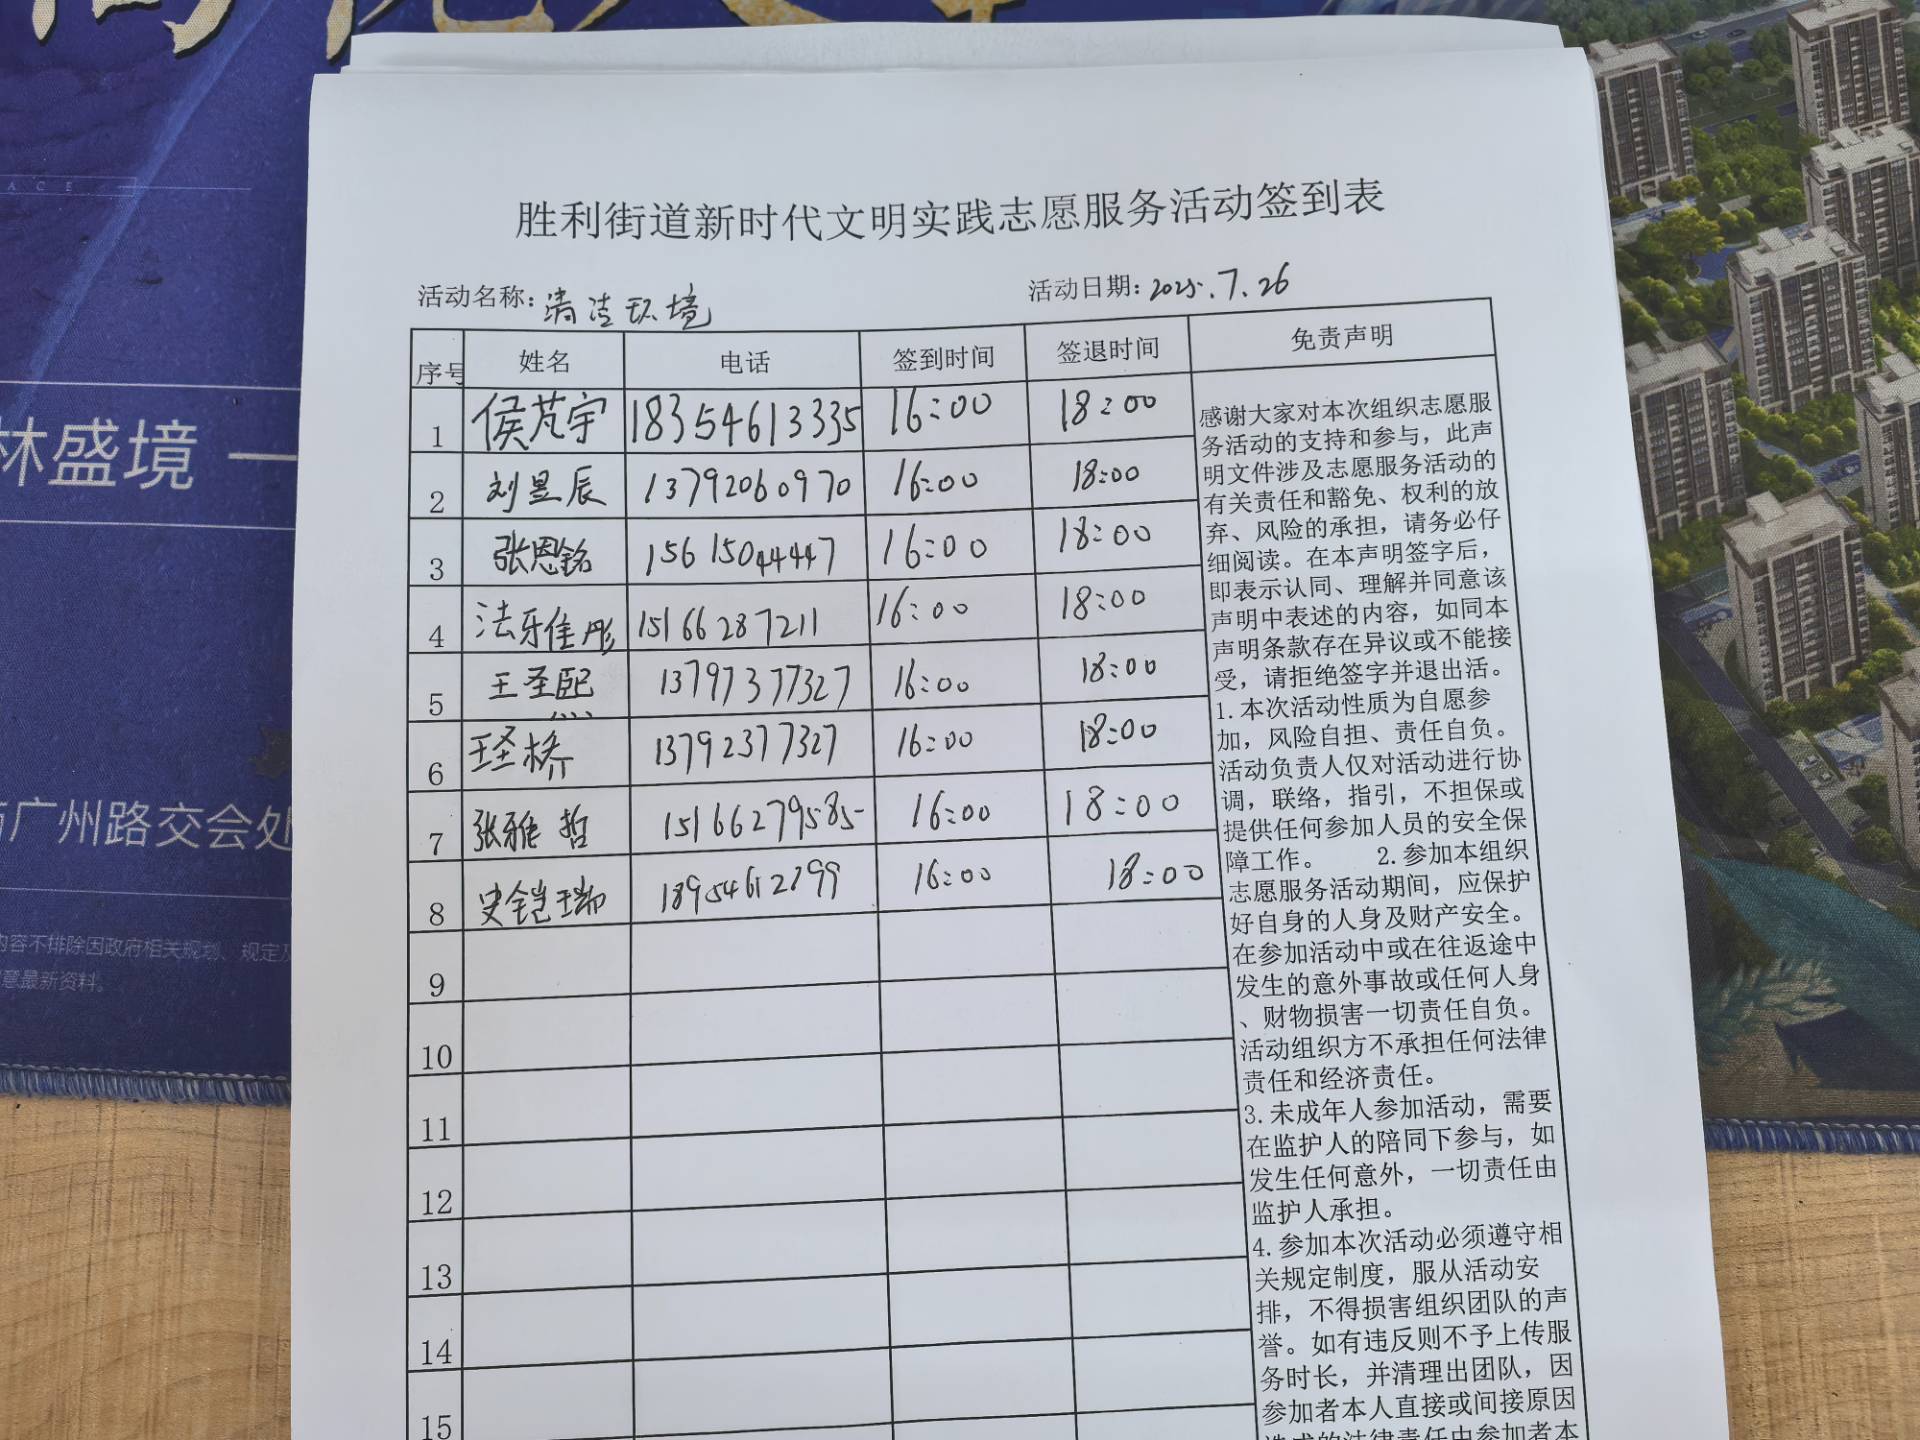 ACE
林盛境 —
广州路交会处
内容不排除因政府相关规划、规定及
意最新资料。
胜利街道新时代文明实践志愿服务活动签到表
活动名称：清洁环境 活动日期：2025.7.26
序号 姓名 电话 签到时间 签退时间 免责声明
1 侯芃宇 18354613335 16:00 18:00
2 刘昱辰 13792060970 16:00 18:00
3 张恩铭 15615044447 16:00 18:00
4 法雅佳彤 15166287211 16:00 18:00
5 王圣熙 13797377327 16:00 18:00
6 王圣桥 13792377327 16:00 18:00
7 张雅哲 15166279585 16:00 18:00
8 史铠瑞 18954612799 16:00 18:00
9
10
11
12
13
14
15
感谢大家对本次组织志愿服
务活动的支持和参与，此声
明文件涉及志愿服务活动的
有关责任和豁免、权利的放
弃、风险的承担，请务必仔
细阅读。在本声明签字后，
即表示认同、理解并同意该
声明中表述的内容，如同本
声明条款存在异议或不能接
受，请拒绝签字并退出活。
1.本次活动性质为自愿参
加，风险自担、责任自负。
活动负责人仅对活动进行协
调，联络，指引，不担保或
提供任何参加人员的安全保
障工作。 2.参加本组织
志愿服务活动期间，应保护
好自身的人身及财产安全。
在参加活动中或在往返途中
发生的意外事故或任何人身
、财物损害一切责任自负。
活动组织方不承担任何法律
责任和经济责任。
3.未成年人参加活动，需要
在监护人的陪同下参与，如
发生任何意外，一切责任由
监护人承担。
4.参加本次活动必须遵守相
关规定制度，服从活动安
排，不得损害组织团队的声
誉。如有违反则不予上传服
务时长，并清理出团队，因
参加者本人直接或间接原因
造成的法律责任由参加者本